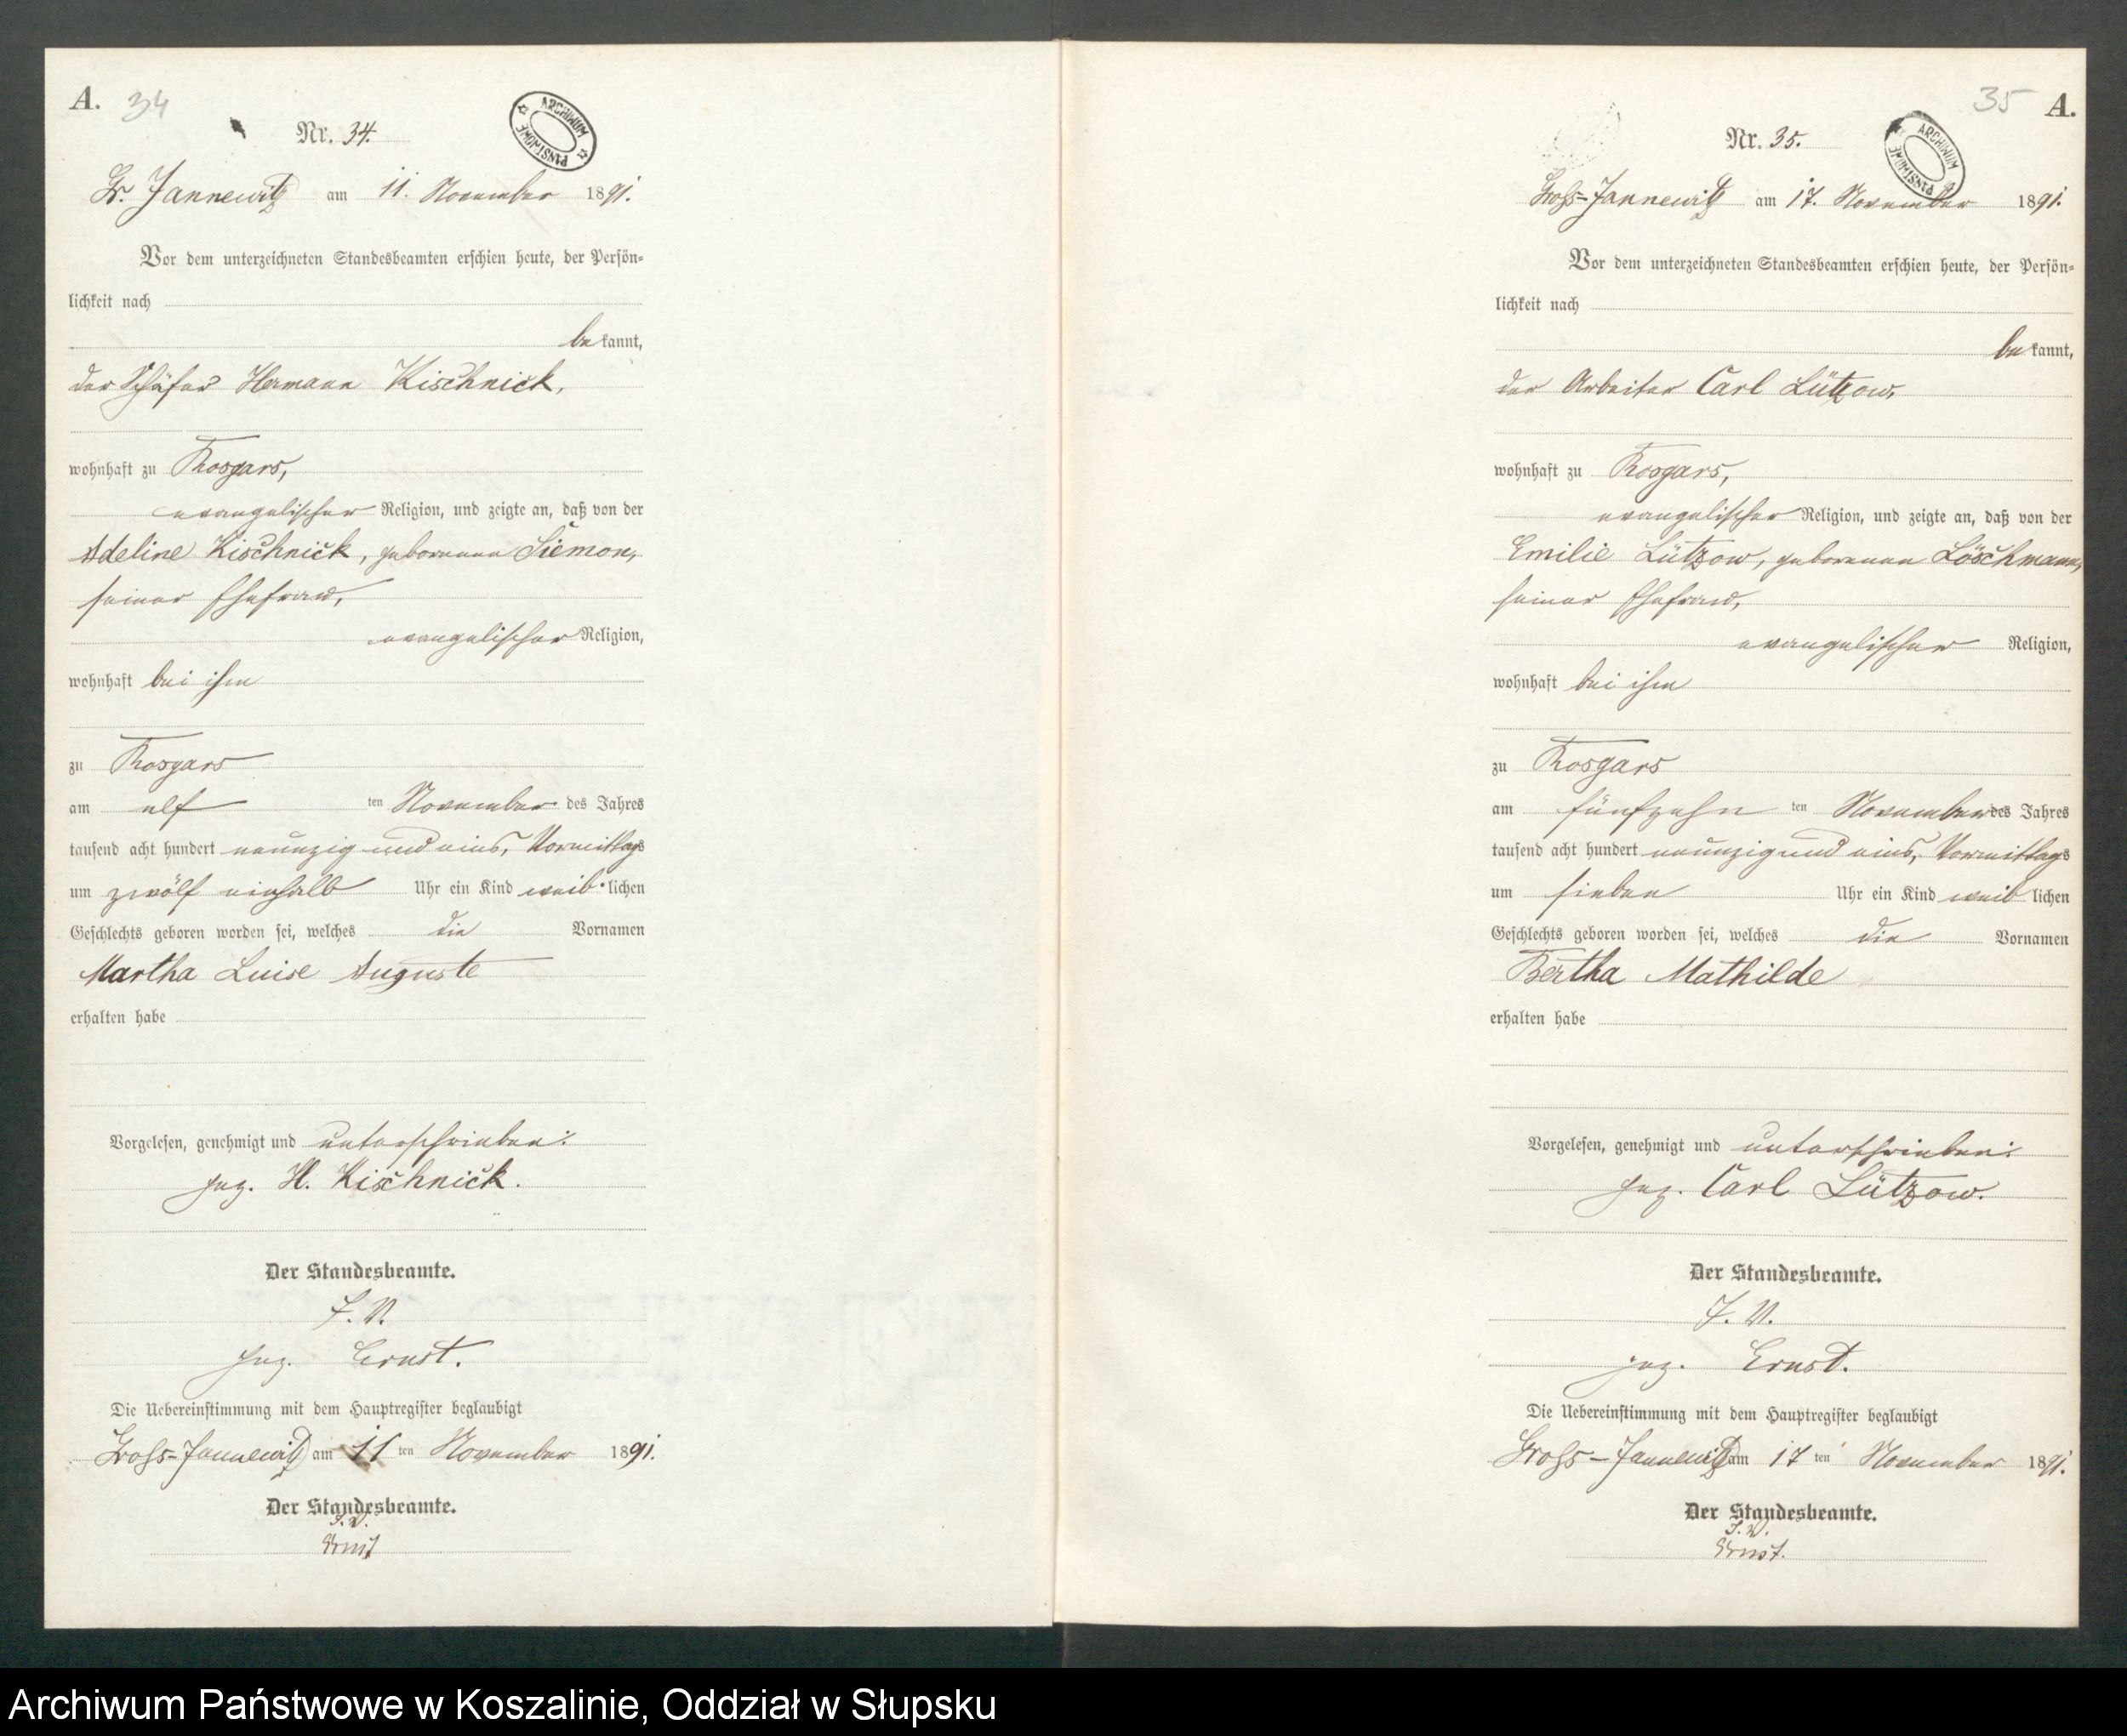 A. 34
Nr. 34.
ARCHIWUM PAŃSTWOWE
Gr. Jannewitz am 11. November 1891.
Vor dem unterzeichneten Standesbeamten erschien heute, der Persön-
lichkeit nach
bekannt,
der Schäfer Hermann Kischnick,
wohnhaft zu Rosgars,
evangelischer Religion, und zeigte an, daß von der
Adeline Kischnick, geborenen Siemon,
seiner Ehefrau,
evangelischer Religion,
wohnhaft bei ihm
zu Rosgars
am elf ten November des Jahres
tausend acht hundert neunzig und eins, Vormittags
um zwölf einhalb Uhr ein Kind weiblichen
Geschlechts geboren worden sei, welches die Vornamen
Martha Luise Auguste
erhalten habe
Vorgelesen, genehmigt und unterschrieben:
gez. H. Kischnick.
Der Standesbeamte.
J. V.
gez. Ernst.
Die Uebereinstimmung mit dem Hauptregister beglaubigt
Gross-Jannewitz am 11 ten November 1891.
Der Standesbeamte.
J. V.
Ernst
35 A.
Nr. 35.
ARCHIWUM PAŃSTWOWE
Gross-Jannewitz am 17. November 1891.
Vor dem unterzeichneten Standesbeamten erschien heute, der Persön-
lichkeit nach
bekannt,
der Arbeiter Carl Lützow,
wohnhaft zu Rosgars,
evangelischer Religion, und zeigte an, daß von der
Emilie Lützow, geborenen Löschmann,
seiner Ehefrau,
evangelischer Religion,
wohnhaft bei ihm
zu Rosgars
am fünfzehn ten November des Jahres
tausend acht hundert neunzig und eins, Vormittags
um sieben Uhr ein Kind weiblichen
Geschlechts geboren worden sei, welches die Vornamen
Bertha Mathilde
erhalten habe
Vorgelesen, genehmigt und unterschrieben:
gez. Carl Lützow.
Der Standesbeamte.
J. V.
gez. Ernst.
Die Uebereinstimmung mit dem Hauptregister beglaubigt
Gross-Jannewitz am 17 ten November 1891.
Der Standesbeamte.
J. V.
Ernst.
Archiwum Państwowe w Koszalinie, Oddział w Słupsku